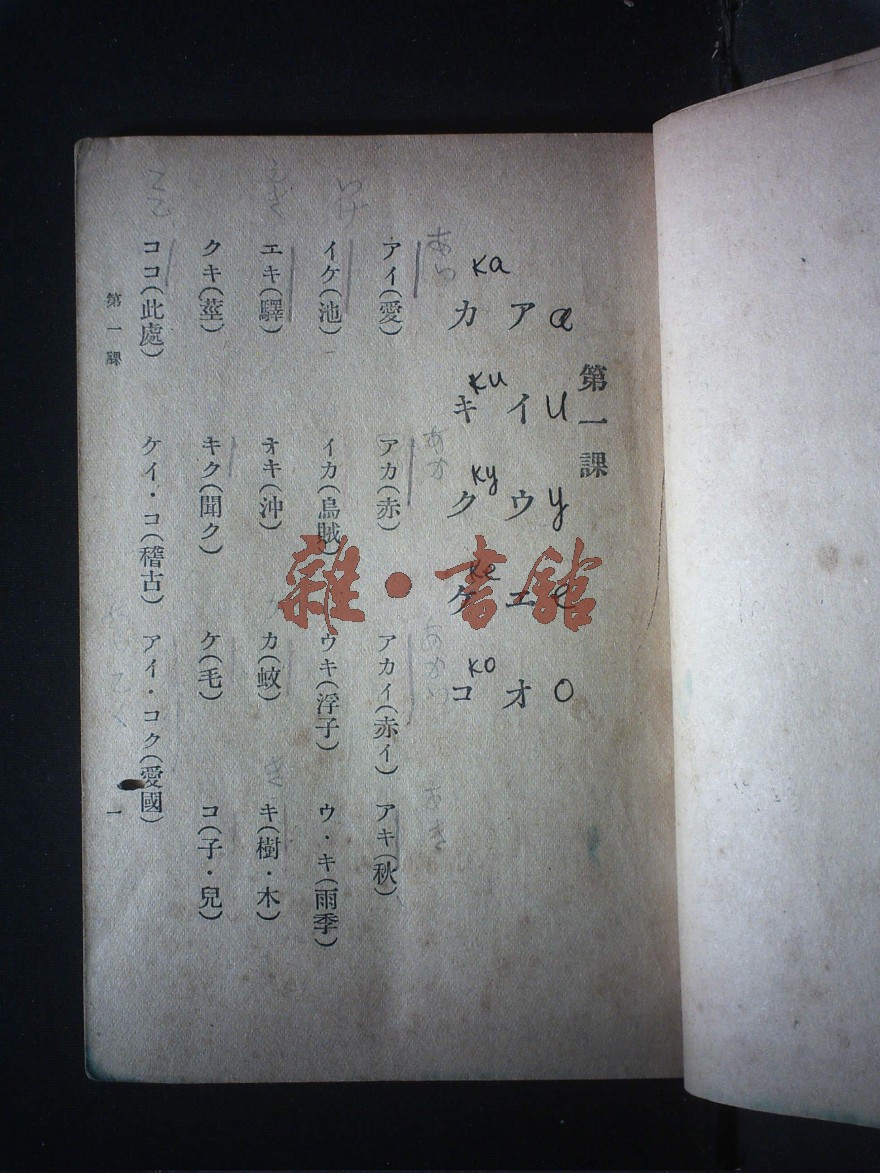 第一課
a u y e o
アイウエオ
ka ku ky ke ko
カキクケコ
あい あか あかい あき
アイ(愛) アカ(赤) アカイ(赤イ) アキ(秋)
いけ
イケ(池) イカ(烏賊) ウキ(浮子) ウ・キ(雨季)
えき き
エキ(驛) オキ(沖) カ(蚊) キ(樹・木)
クキ(莖) キク(聞ク) ケ(毛) コ(子・兒)
ココ
ココ(此處) ケイ・コ(稽古) アイ・コク(愛國)
第一課 一
雜・書館